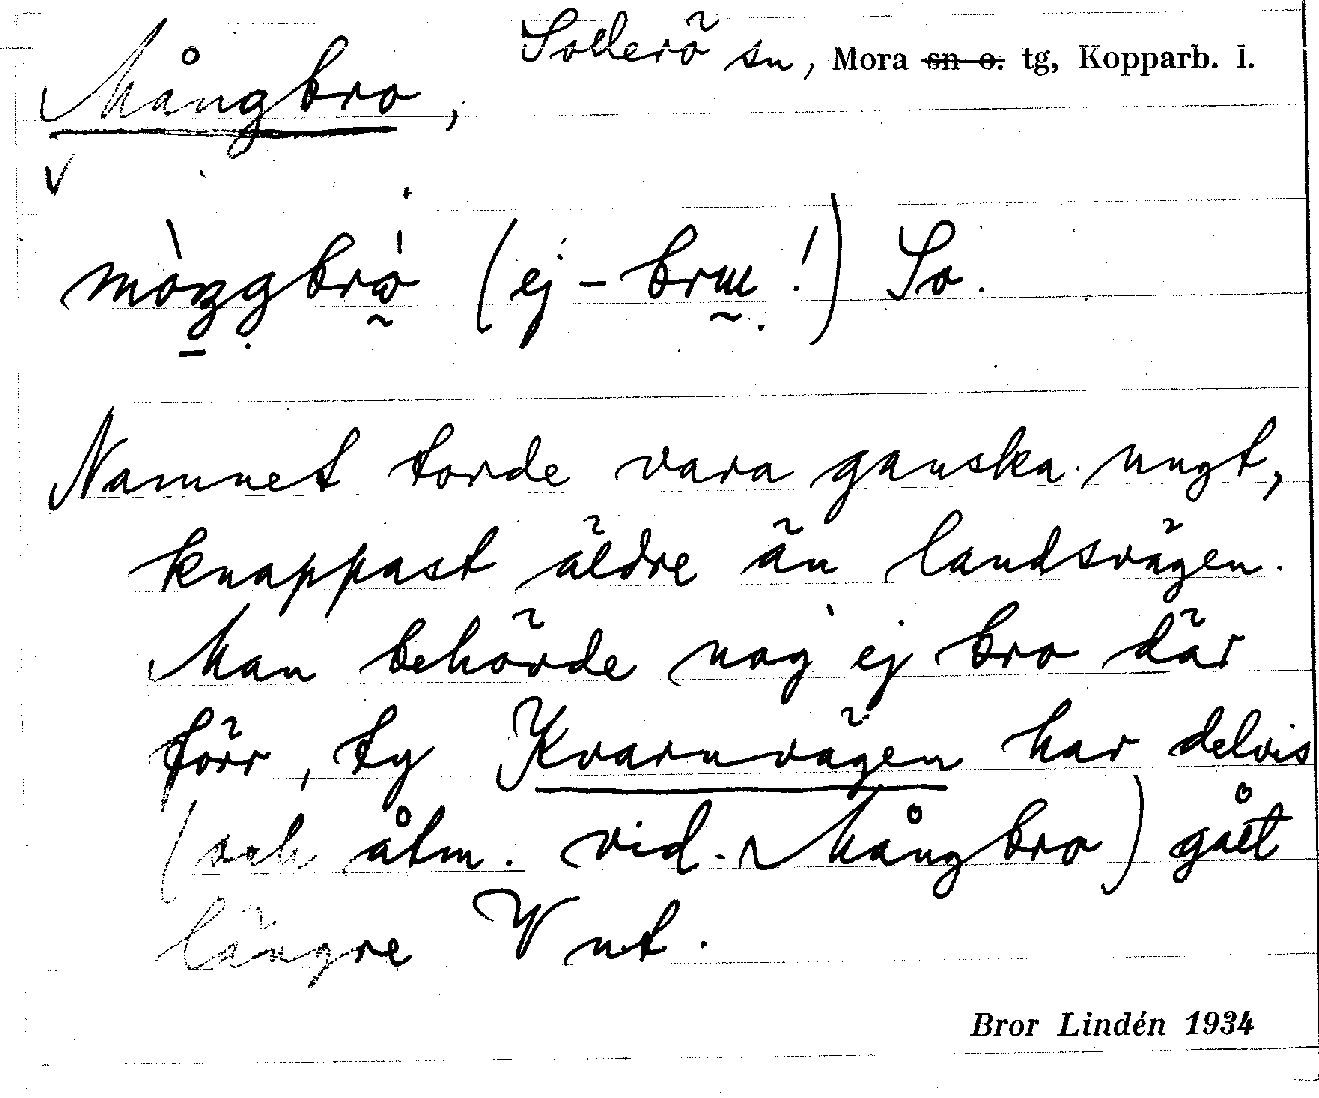 Sollerö sn, Mora sn o. tg, Kopparb. l.
Mångbro,
(ej -brɯ!) So.
Namnet torde vara ganska ungt,
knappast äldre än landsvägen.
Man behövde nog ej bro där
förr, ty Kvarnvägen har delvis
(och åtm. vid Mångbro) gått
längre V ut.
Bror Lindén 1934